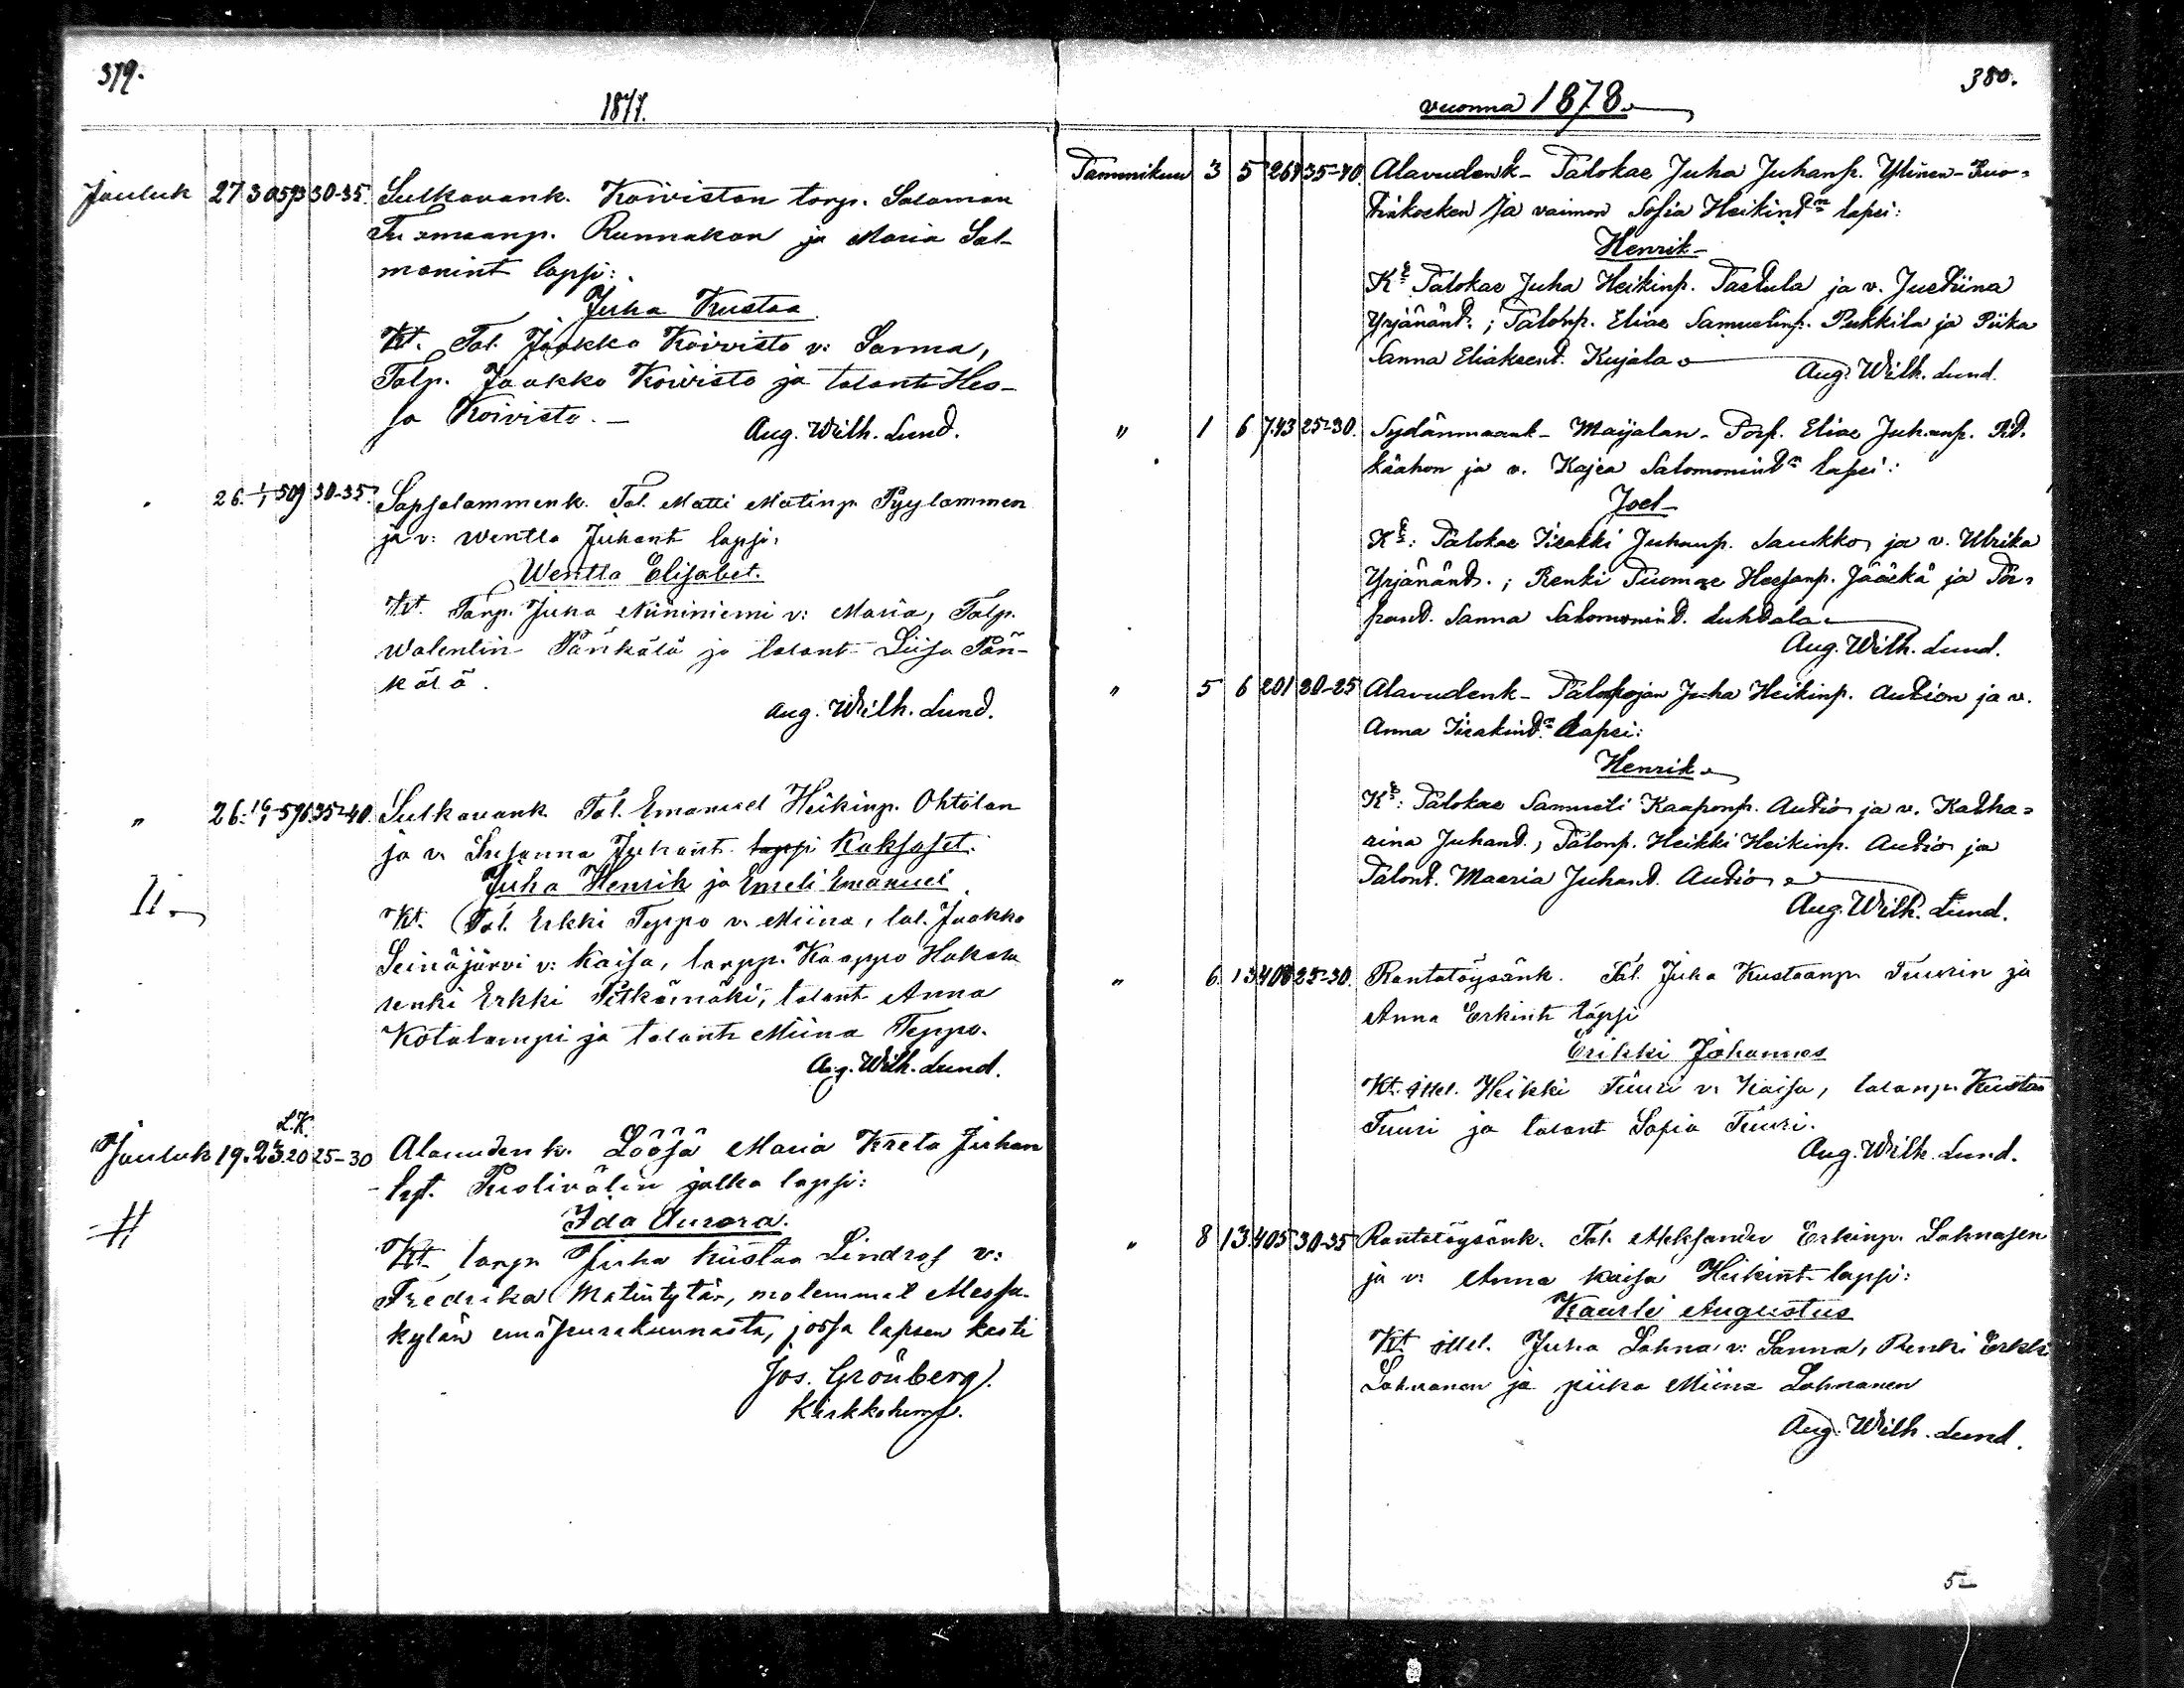 379.
1877.
Jouluk 27 30 593 30-35. Sulkavank. Koiviston torp. Salomon
Tuomaanp. Runnakon ja Maria Sal-
monint lapsi:
Juha Kustaa
Kt. Tal. Jaakko Koivisto v: Sanna,
Talp. Jaakko Koivisto ja talont Hes-
sa Koivisto.-
Aug. Wilh. Lund.
26. 1/1 509 30-35. Sapsalammenk. Tal. Matti Matinp. Pyylammen
ja v: Wentla Juhant lapsi:
Wentla Elisabet.
Kt. Torp. Juha Niininiemi v: Maria, Talp.
Walentin Pänkälä ja talont Liisa Pän-
kälä.
Aug. Wilh. Lund.
" 26. 16/1 596 35-40. Sulkavank. Tal. Emanuel Heikinp. Ohtolan
ja v. Susanna Juhant. lapsi Kaksoset.
Juha Henrik ja Emeli Emanuel
II.
Kt. Tal. Erkki Teppo v. Miina, tal. Jaakko
Seinäjärvi v: Kaisa, torpp. Kaappo Hakola
renki Erkki Pitkämäki, talont Anna
Kotalampi ja talont Miina Teppo.
Aug. Wilh. Lund.
L.K.
Jouluk 19. 23. 20 25-30 Alavuden k. Löösä Maria Kreta Juhan
tyt. Puolivälin jalka lapsi:
Ida Aurora.
Kt. torp. Juha Kustaa Lindrof v:
Fredrika Matintytär, molemmat Messu-
kylän emäseurakunnasta, jossa lapsen kasti
Jos. Grönberg.
Kirkkoherra.
380.
vuonna 1878.
Tammikuu 3 5 264 35-40. Alavudenk- Talokas Juha Juhanp. Ylinen-Kuo-
ja vaimon Sofia Heikindr lapsi:
Henrik-
Kt Talokas Juha Heikinp. Tastula ja v. Justiina
Yrjänänt.; Talonp. Elias Samuelinp. Pukkila ja Piika
Sanna Eliaksent. Kujala
Aug. Wilh. Lund.
" 1 6 743 25-30. Sydänmaank- Maijalan- Torp. Elias Juhanp. Pit-
käahon ja v. Kajsa Salomonint lapsi:
Joel-
Kt: Talokas Iisakki Juhanp. Saukko, ja v. Ulrika
Yrjänänt.; Renki Tuomas Heskanp. Jääskä ja Tor-
pant. Sanna Salomonint. Luhtala
Aug. Wilh. Lund.
" 5 6 201 20-25 Alavudenk- Talonpojan Juha Heikinp. Aution ja v.
Anna Iisakint lapsi:
Henrik
Kt: Talokas Samueli Kaaponp. Autio, ja v. Katha-
rina Juhant., Talonp. Heikki Heikinp. Autio ja
Talont. Maaria Juhant. Autio
Aug. Wilh. Lund.
" 6. 13 400 25-30. Rantatöysänk. Tal. Juha Kustaanp. Tuurin ja
Anna Erkint lapsi
Erikki Johannes
Kt. ittel. Heikki Tuuri v. Kaisa, talonp. Kustaa
Tuuri ja talont Sofia Tuuri.
Aug. Wilh. Lund.
" 8 13. 405 30-35 Rantatöysänk. Tal. Aleksander Erkinp. Lahnasen
ja v: Anna Kaisa Heikint lapsi:
Kaarle Augustus
Kt ittel. Juha Lahna v: Sanna, Renki Erkki
Lahnanen ja piika Miina Lahnanen
Aug. Wilh. Lund.
5-